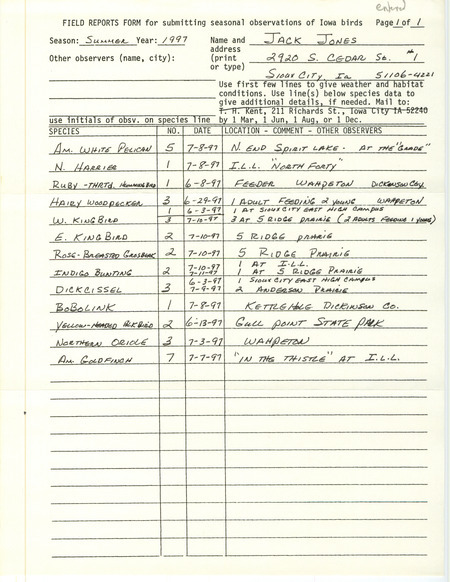 entered
FIELD REPORTS FORM for submitting seasonal observations of Iowa birds Page 1 of 1
Season: Summer Year: 1997 Name and JACK JONES
address
Other observers (name, city): (print 2920 S. CEDAR SQ. #1
or type)
SIOUX CITY, IA 51106-4221
Use first few lines to give weather and habitat
conditions. Use line(s) below species data to
give additional details, if needed. Mail to:
T. H. Kent, 211 Richards St., Iowa City IA 52240
use initials of obsv. on species line by 1 Mar, 1 Jun, 1 Aug, or 1 Dec.
SPECIES NO. DATE LOCATION - COMMENT - OTHER OBSERVERS
AM. WHITE PELICAN 5 7-8-97 N. END SPIRIT LAKE. AT THE "GRADE"
N. HARRIER 1 7-8-97 I.L.L. "NORTH FORTY"
RUBY-THRTD. HUMMINGBIRD 1 6-8-97 FEEDER WAHPETON DICKINSON COY
HAIRY WOODPECKER 3 6-29-97 1 ADULT FEEDING 2 YOUNG WAHPETON
1 6-3-97 1 AT SIOUX CITY EAST HIGH CAMPUS
W. KINGBIRD 3 7-10-97 3 AT 5 RIDGE PRAIRIE (2 ADULTS FEEDING 1 YOUNG)
E. KINGBIRD 2 7-10-97 5 RIDGE PRAIRIE
ROSE-BREASTED GROSBEAK 2 7-10-97 5 RIDGE PRAIRIE
7-10-97 1 AT I.L.L.
INDIGO BUNTING 2 7-11-97 1 AT 5 RIDGE PRAIRIE
6-3-97 1 SIOUX CITY EAST HIGH CAMPUS
DICKCISSEL 3 7-9-97 2 ANDERSON PRAIRIE
BOBOLINK 1 7-8-97 KETTLEHOLE DICKINSON CO.
YELLOW-HEADED BLKBIRD 2 6-13-97 GULL POINT STATE PARK
NORTHERN ORIOLE 3 7-3-97 WAHPETON
AM. GOLDFINCH 7 7-7-97 "IN THE THISTLE" AT I.L.L.